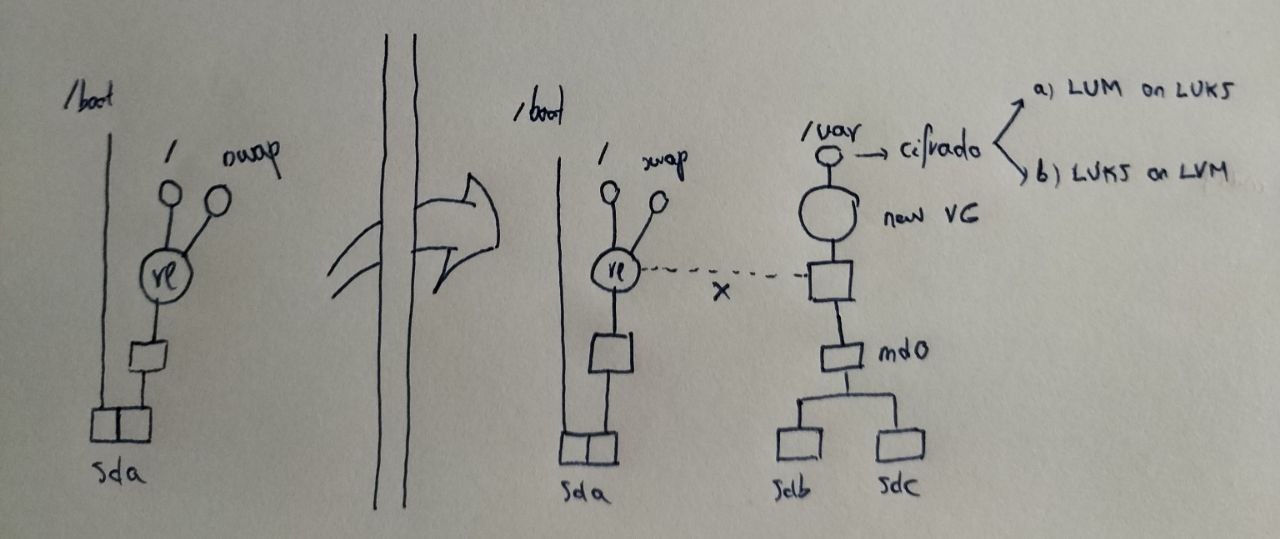 /boot
/
swap
rl
sda
/boot
/
swap
rl
x
sda
/var → cifrado
a) LVM on LUKS
b) LUKS on LVM
new VG
md0
sdb
sdc